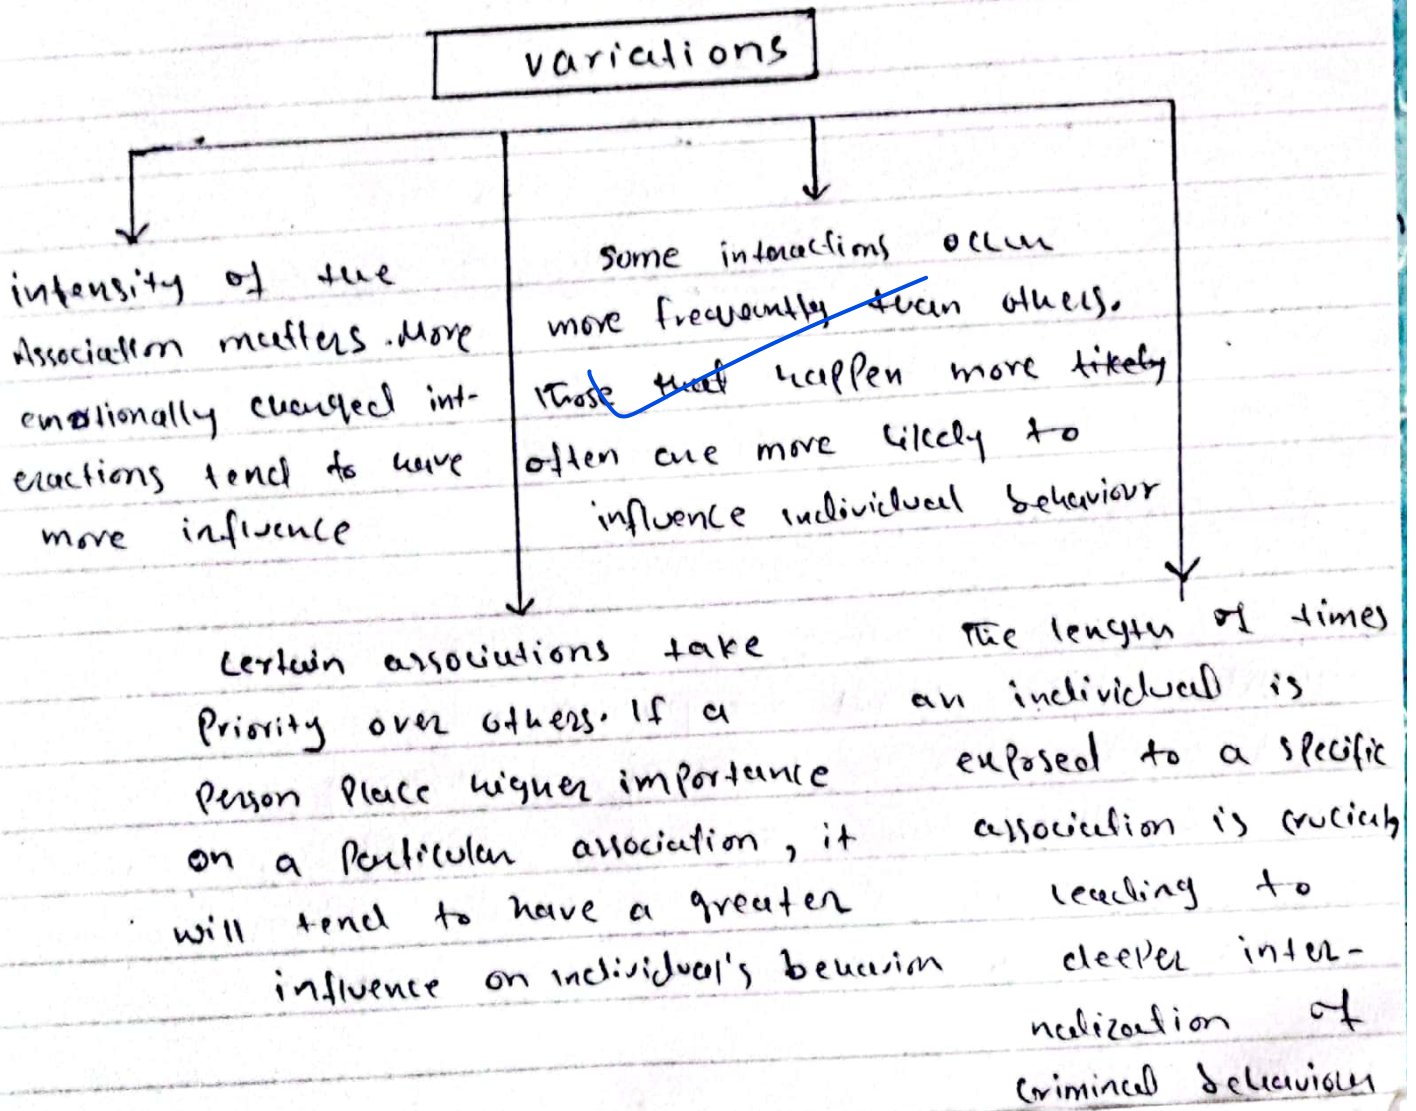 variations
intensity of the
Association matters. More
emotionally charged int-
eractions tend to have
more influence
Some interactions occur
more frequently than others.
Those that happen more likely
often are more likely to
influence individual behaviour
Certain associations take
Priority over others. If a
Person Place higher importance
on a Particular association, it
will tend to have a greater
influence on individual's behavior
The length of times
an individual is
exposed to a specific
association is crucial,
leading to
deeper inter-
nalization of
criminal behaviour